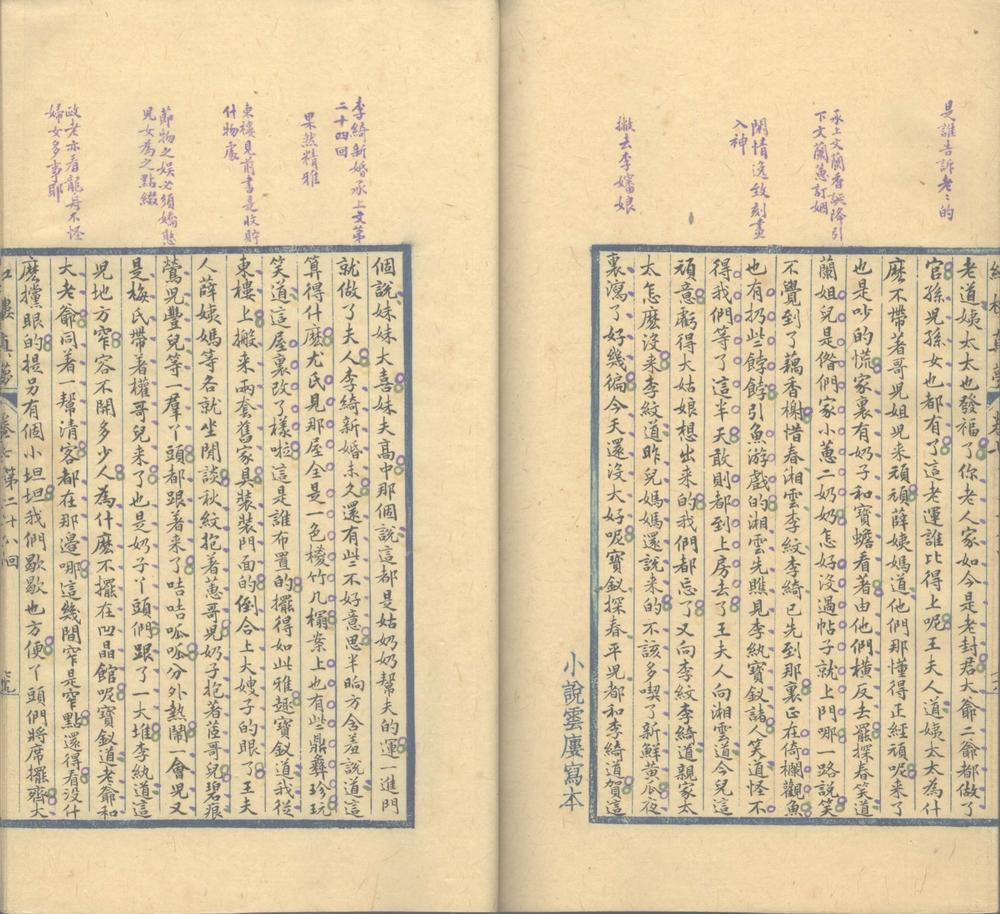 是誰告訴老〻的
承上文蘭香誕降引
下文蘭蕙訂姻
閑情逸致刻畫
入神
撇去李嬸娘
紅樓真夢
老道姨太太也發福了你老人家如今是老封君大爺二爺都做了
官孫兒孫女也都有了這老運誰比得上呢王夫人道姨太太為什
麼不帶著哥兒姐兒來頑頑薛姨媽道他們那懂得正經頑呢來了
也是吵的慌家裏有奶子和寶蟾看著由他們橫反去罷探春笑道
蘭姐兒是偺們家小蕙二奶奶怎好沒過帖子就上門哪一路說笑
不覺到了藕香榭惜春湘雲李紋李綺已先到那裏正在倚欄觀魚
也有扔些餑餑引魚游戲的湘雲先瞧見李紈寶釵諸人笑道怪不
得我們等了這半天敢則都到上房去了王夫人向湘雲道今兒這
頑意虧得大姑娘想出來的我們都忘了又向李紋李綺道親家太
太怎麼沒來李紋道昨兒媽媽還說來的不該多喫了新鮮黃瓜夜
裏瀉了好幾徧今天還沒大好呢寶釵探春平兒都和李綺道賀這
小說雲廔寫本
李綺新婚承上文第
二十四回
果然精雅
東樓見前書是收貯
什物處
節物之娛必須嬌憨
兒女為之點綴
政老亦看龍舟不怪
婦女多事耶
個說妹妹大喜妹夫高中那個說這都是姑奶奶幫夫的運一進門
就做了夫人李綺新婚未久還有些不好意思半晌方含羞說道這
算得什麼尤氏見那屋全是一色椶竹几榻案上也有些鼎彝珍玩
笑道這屋裏改了樣啦這是誰布置的擺得如此雅趣寶釵道我從
東樓上搬來兩套舊家具裝裝門面的倒合上大嫂子的眼了王夫
人薛姨媽等各就坐閒談秋紋抱著蕙哥兒奶子抱著苣哥兒碧痕
鶯兒豐兒等一羣丫頭都跟著來了咭咭呱呱分外熱鬧一會兒又
是梅氏帶著權哥兒來了也是奶子丫頭們跟了一大堆李紈道這
兒地方窄容不開多少人為什麼不擺在凹晶館呢寶釵道老爺和
大老爺同著一幫清客都在那邊哪這幾間窄是窄點還得看沒什
麼攩眼的提另有個小坦坦我們歇歇也方便丫頭們將席擺齊大
紅樓真夢